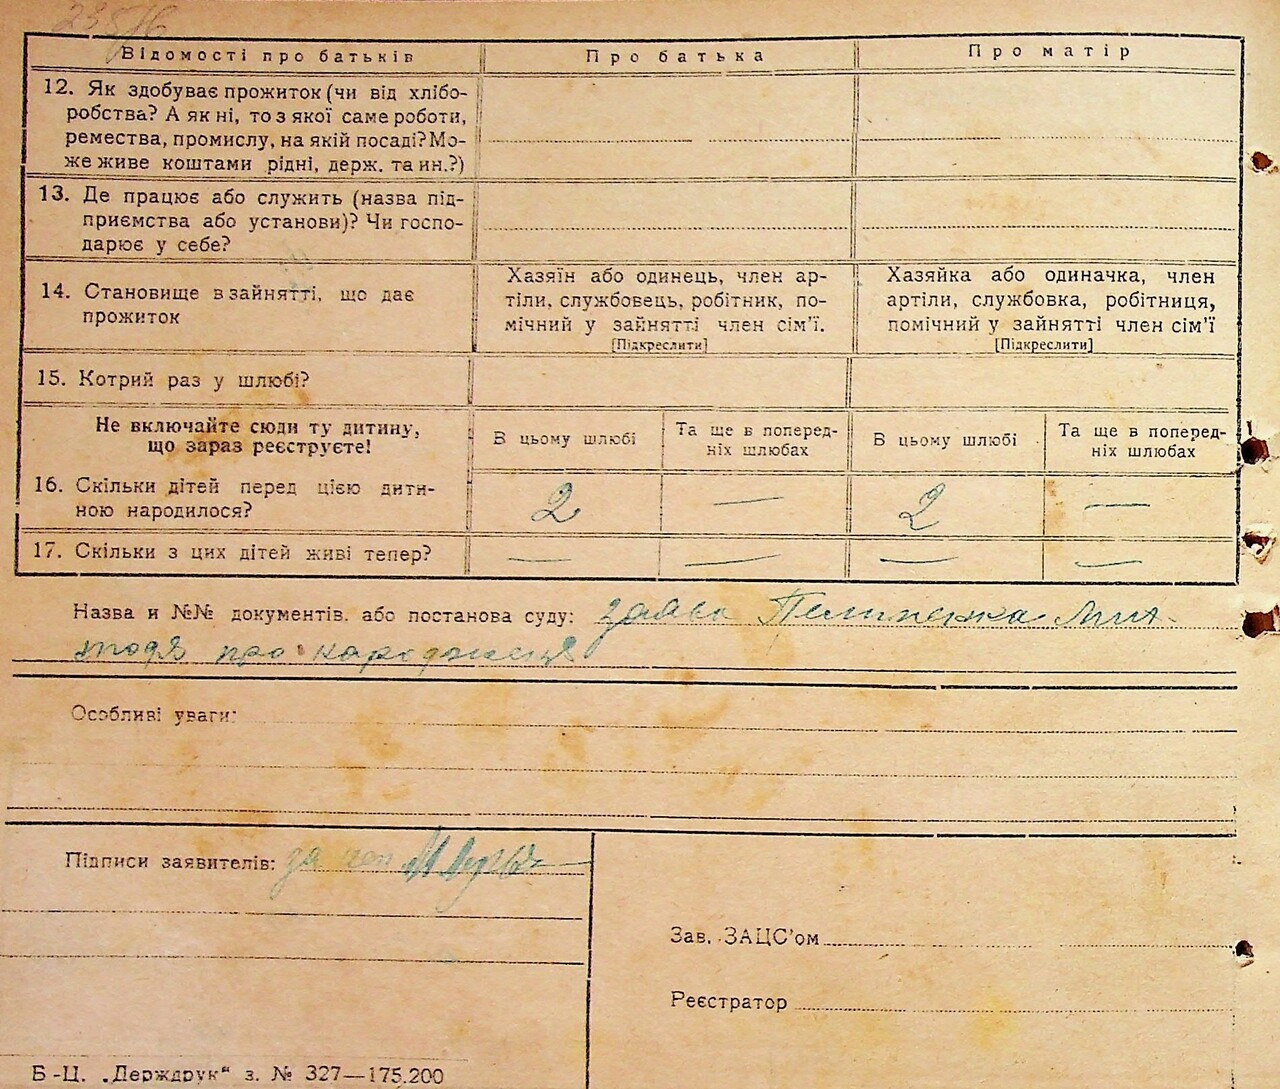 Відомості про батьків
Про батька
Про матір
12. Як здобуває прожиток (чи від хлібо-
робства? А як ні, то з якої саме роботи,
ремества, промислу, на якій посаді? Мо-
же живе коштами рідні, держ. та ин.?)
13. Де працює або служить (назва під-
приємства або установи)? Чи госпо-
дарює у себе?
14. Становище в зайнятті, що дає
прожиток
Хазяїн або одинець, член ар-
тіли, службовець, робітник, по-
мічний у зайнятті член сім'ї.
[Підкреслити]
Хазяйка або одиначка, член
артіли, службовка, робітниця,
помічний у зайнятті член сім'ї
[Підкреслити]
15. Котрий раз у шлюбі?
Не включайте сюди ту дитину,
що зараз реєструєте!
В цьому шлюбі
Та ще в поперед-
ніх шлюбах
В цьому шлюбі
Та ще в поперед-
ніх шлюбах
16. Скільки дітей перед цією дити-
ною народилося?
2 — 2 —
17. Скільки з цих дітей живі тепер?
— — — —
Назва и №№ документів. або постанова суду: заява
про народження
Особливі уваги:
Підписи заявителів:
Зав. ЗАЦС'ом
Реєстратор
Б-Ц. „Держдрук“ з. № 327—175.200